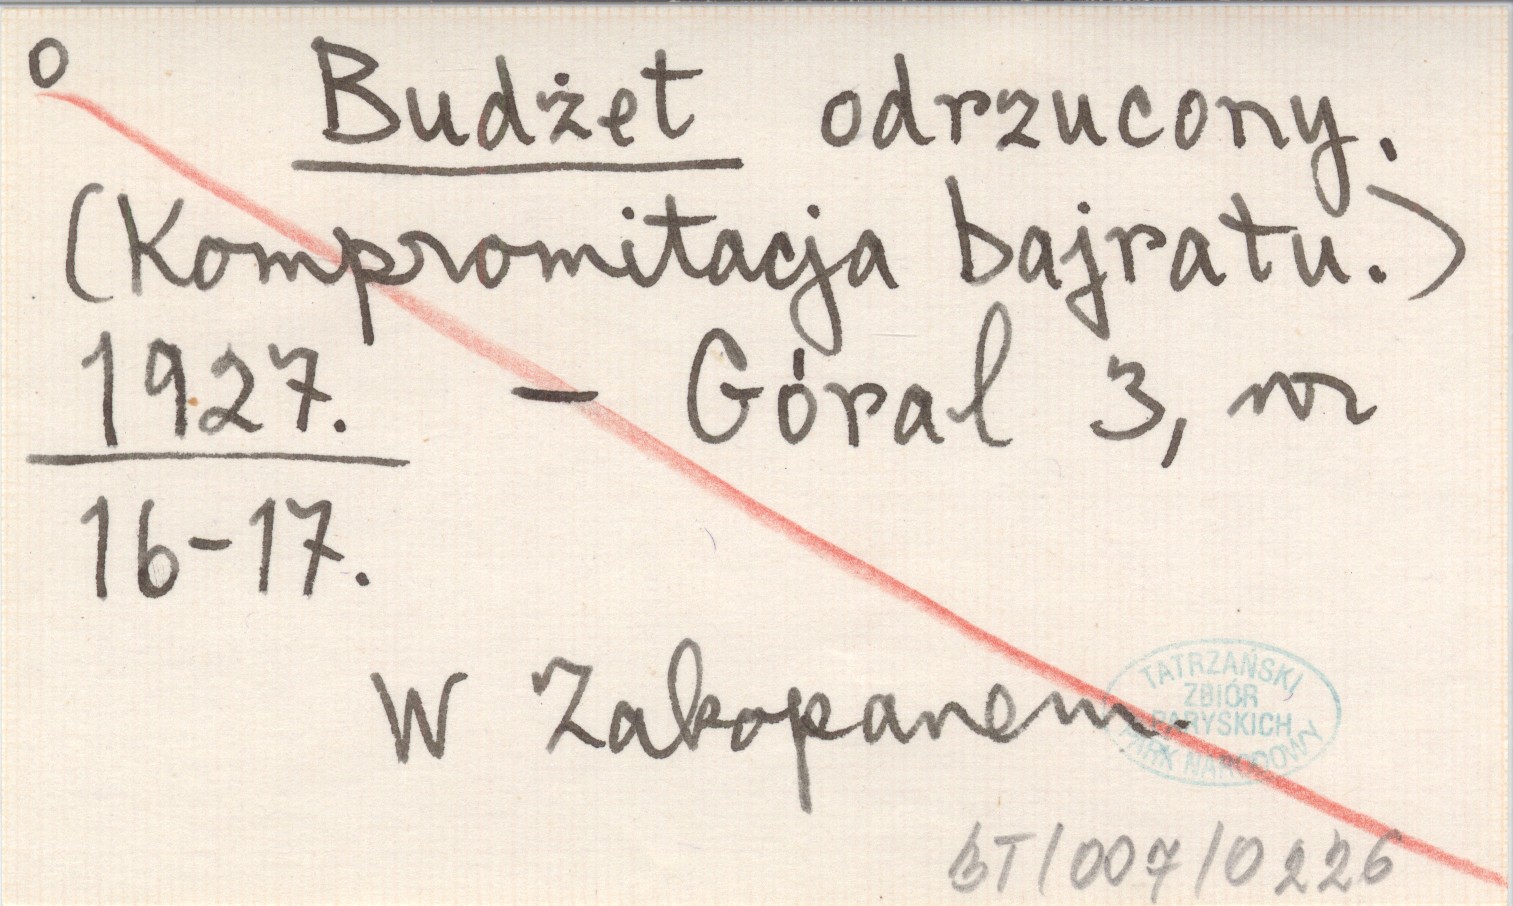 o Budżet odrzucony.
(Kompromitacja bajratu.)
1927. - Góral 3, nr
16-17.
W Zakopanem.
TATRZAŃSKI
ZBIÓR
PARYSKICH
PARK NARODOWY
BT/007/0226